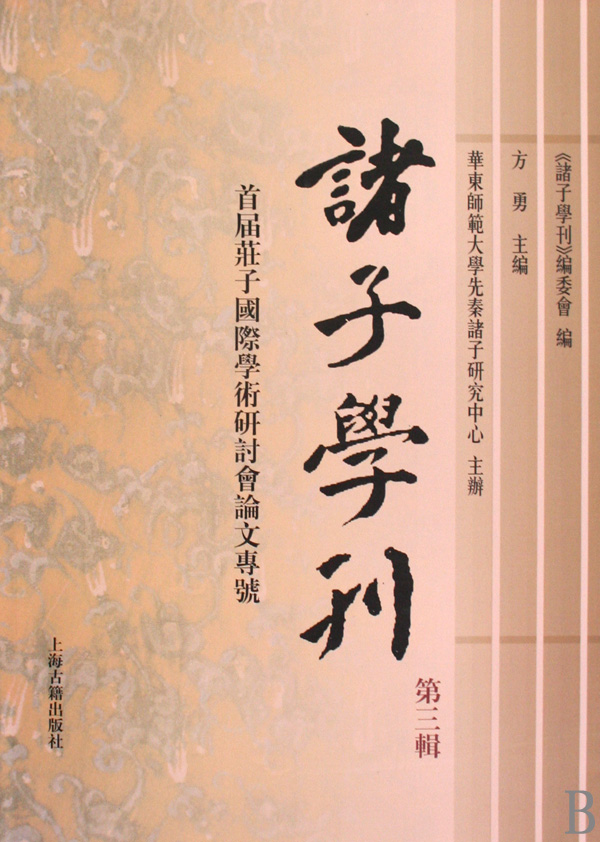 《諸子學刊》編委會 編
方勇 主編
華東師範大學先秦諸子研究中心 主辦
諸子學刊
第三輯
首届莊子國際學術研討會論文專號
上海古籍出版社
B